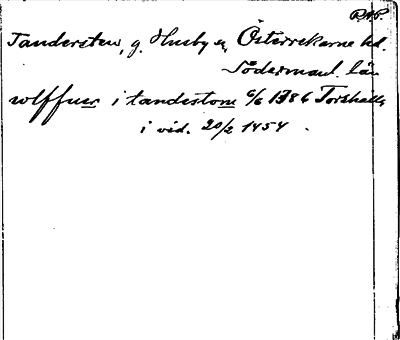 P.A.P.
Tandersten, g. Husby sn, Österrekarne hd.
Södermanl. län
wlffuer i tandestom 6/6 1386 Torshälla
i vid. 20/2 1454.